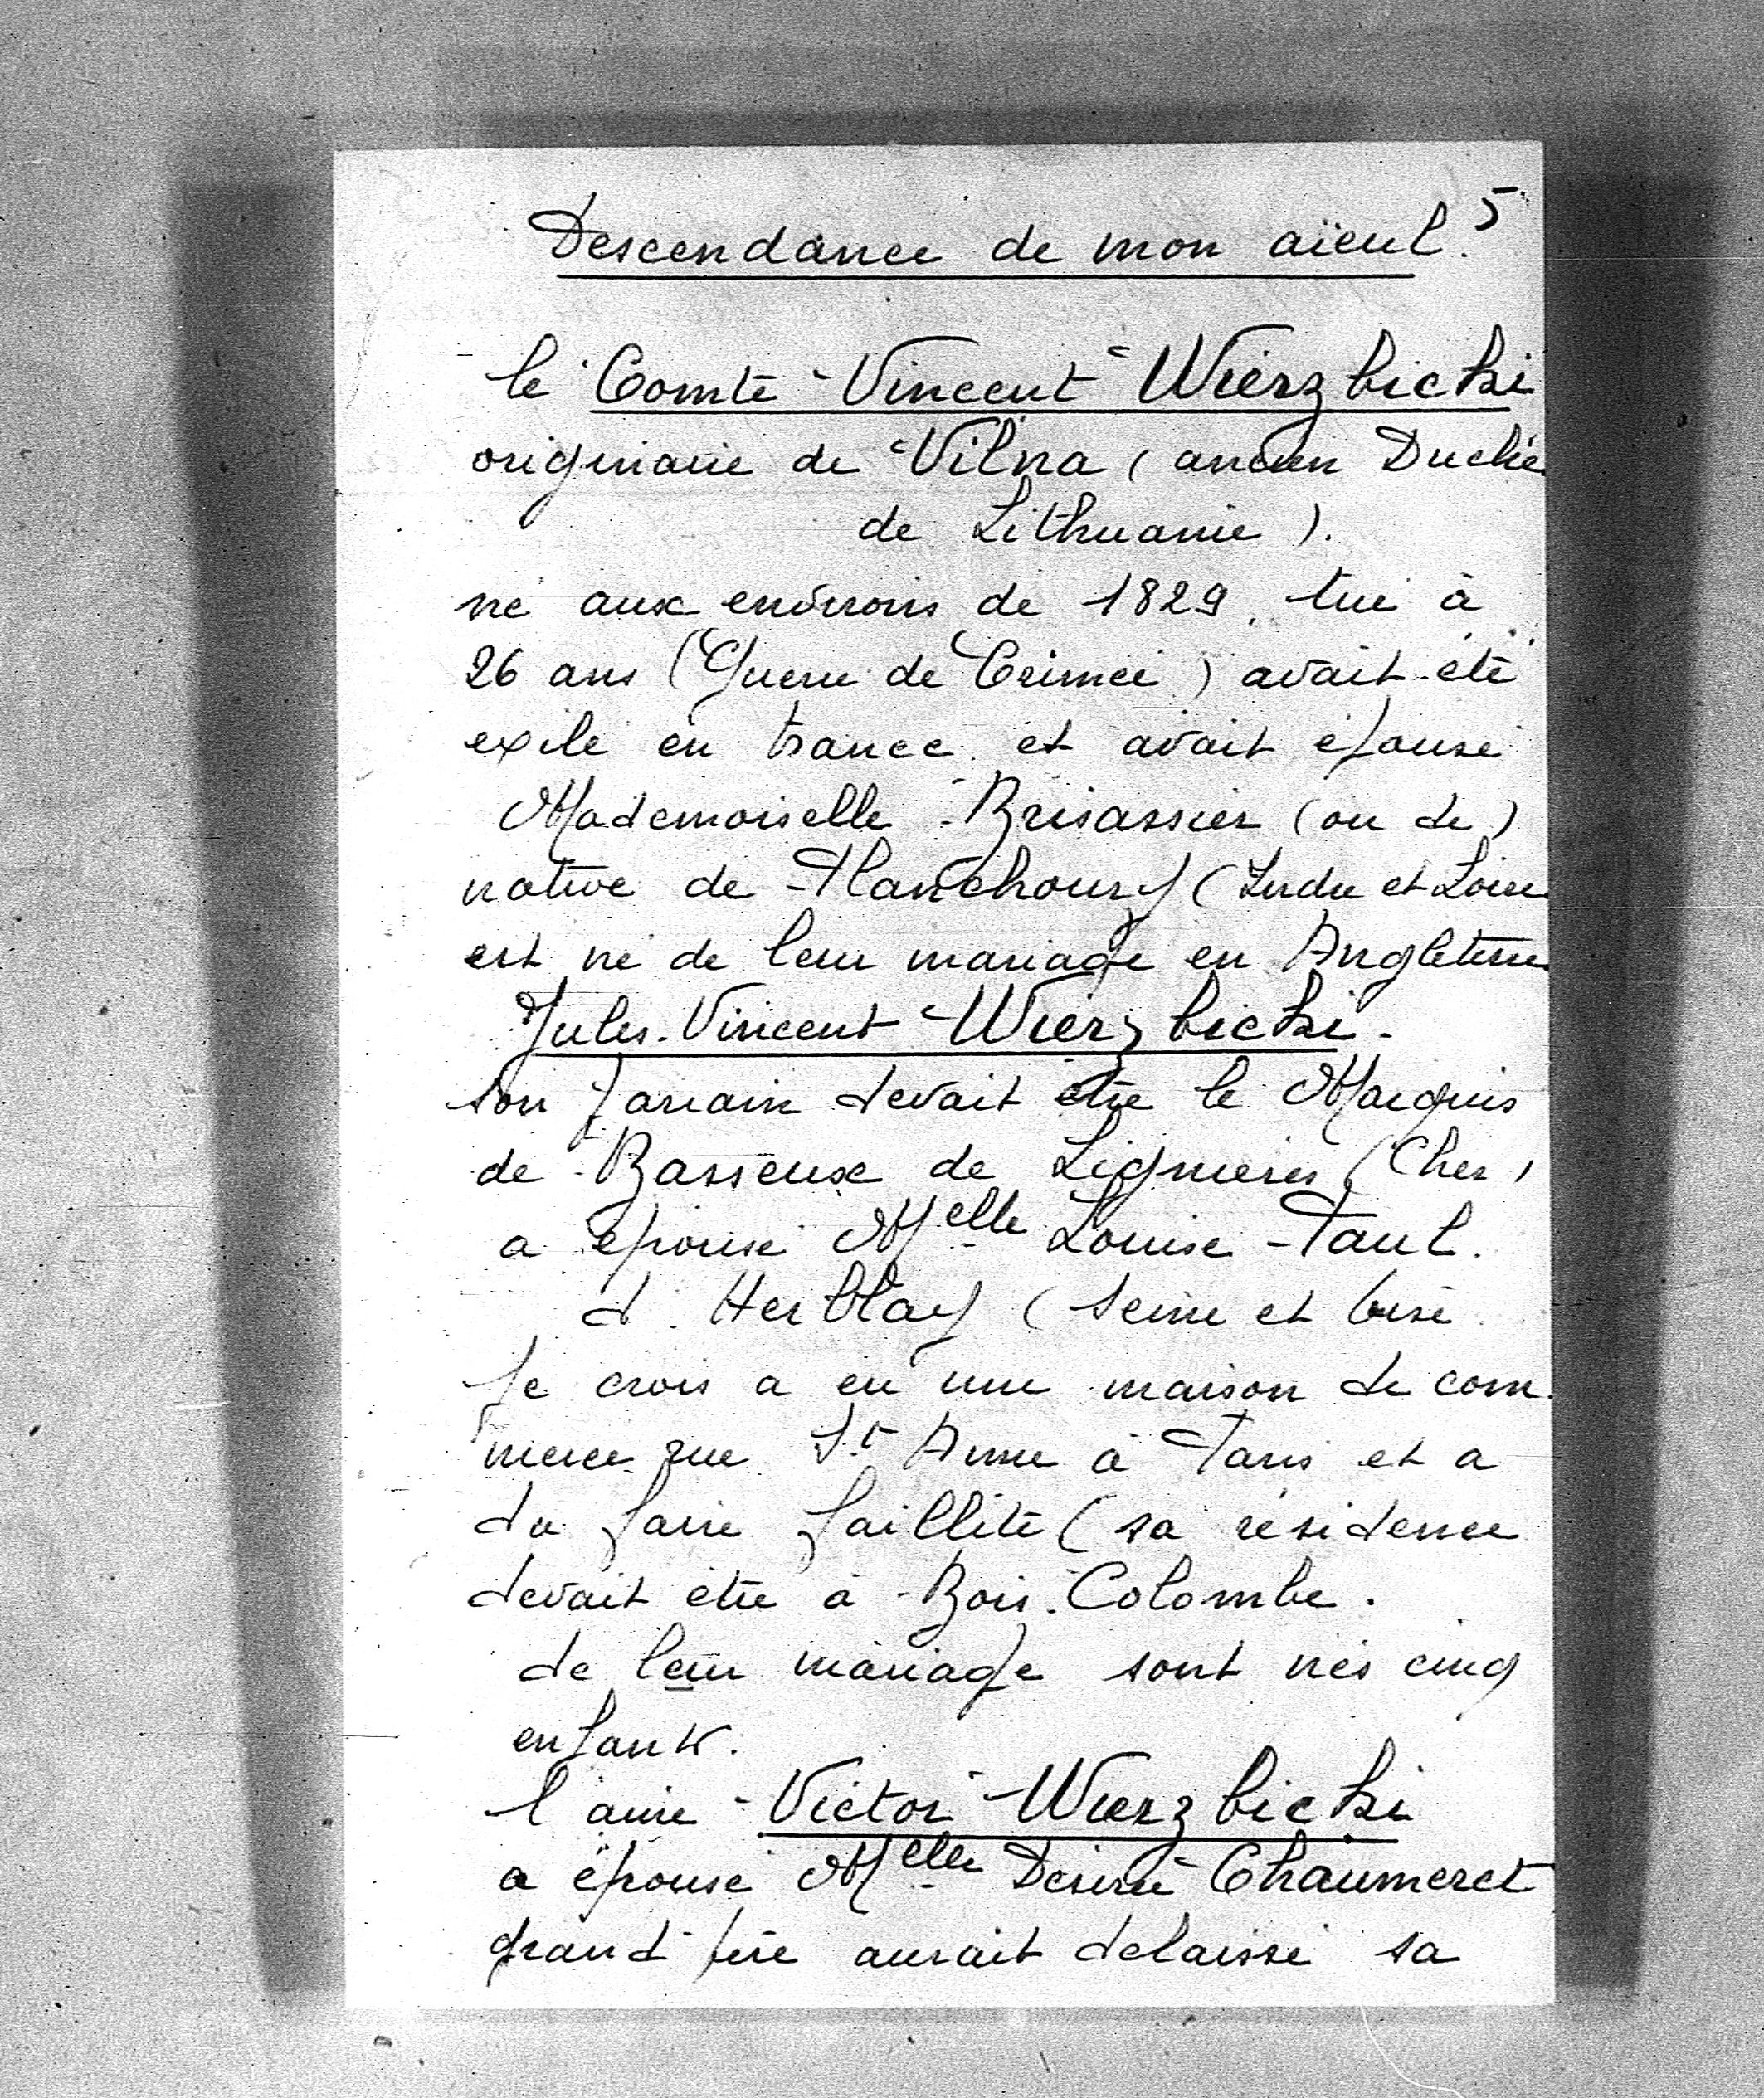 5
Descendance de mon aïeul.
le Comte Vincent Wierzbicki
originaire de Vilna (ancien Duché
de Lithuanie).
né aux environs de 1829, tué à
26 ans (Guerre de Crimée) avait été
exilé en France et avait épousé
Mademoiselle Brisassier (ou de)
native de Planchoury (Indre et Loire
est né de leur mariage en Angleterre
Jules-Vincent Wierzbicki.
son parrain devait être le Marquis
de Basseux de Lignières (Cher)
a épousé Melle Louise Paul.
d'Herblay (Seine et Oise
Je crois a eu une maison de com-
merce rue St Anne à Paris et a
du faire faillite (sa résidence
devait être à Bois-Colombe.
de leur mariage sont nés cinq
enfants.
l'ainé Victor Wierzbicki
a épousé Melle Désirée Chaumeret
grand père aurait délaissé sa